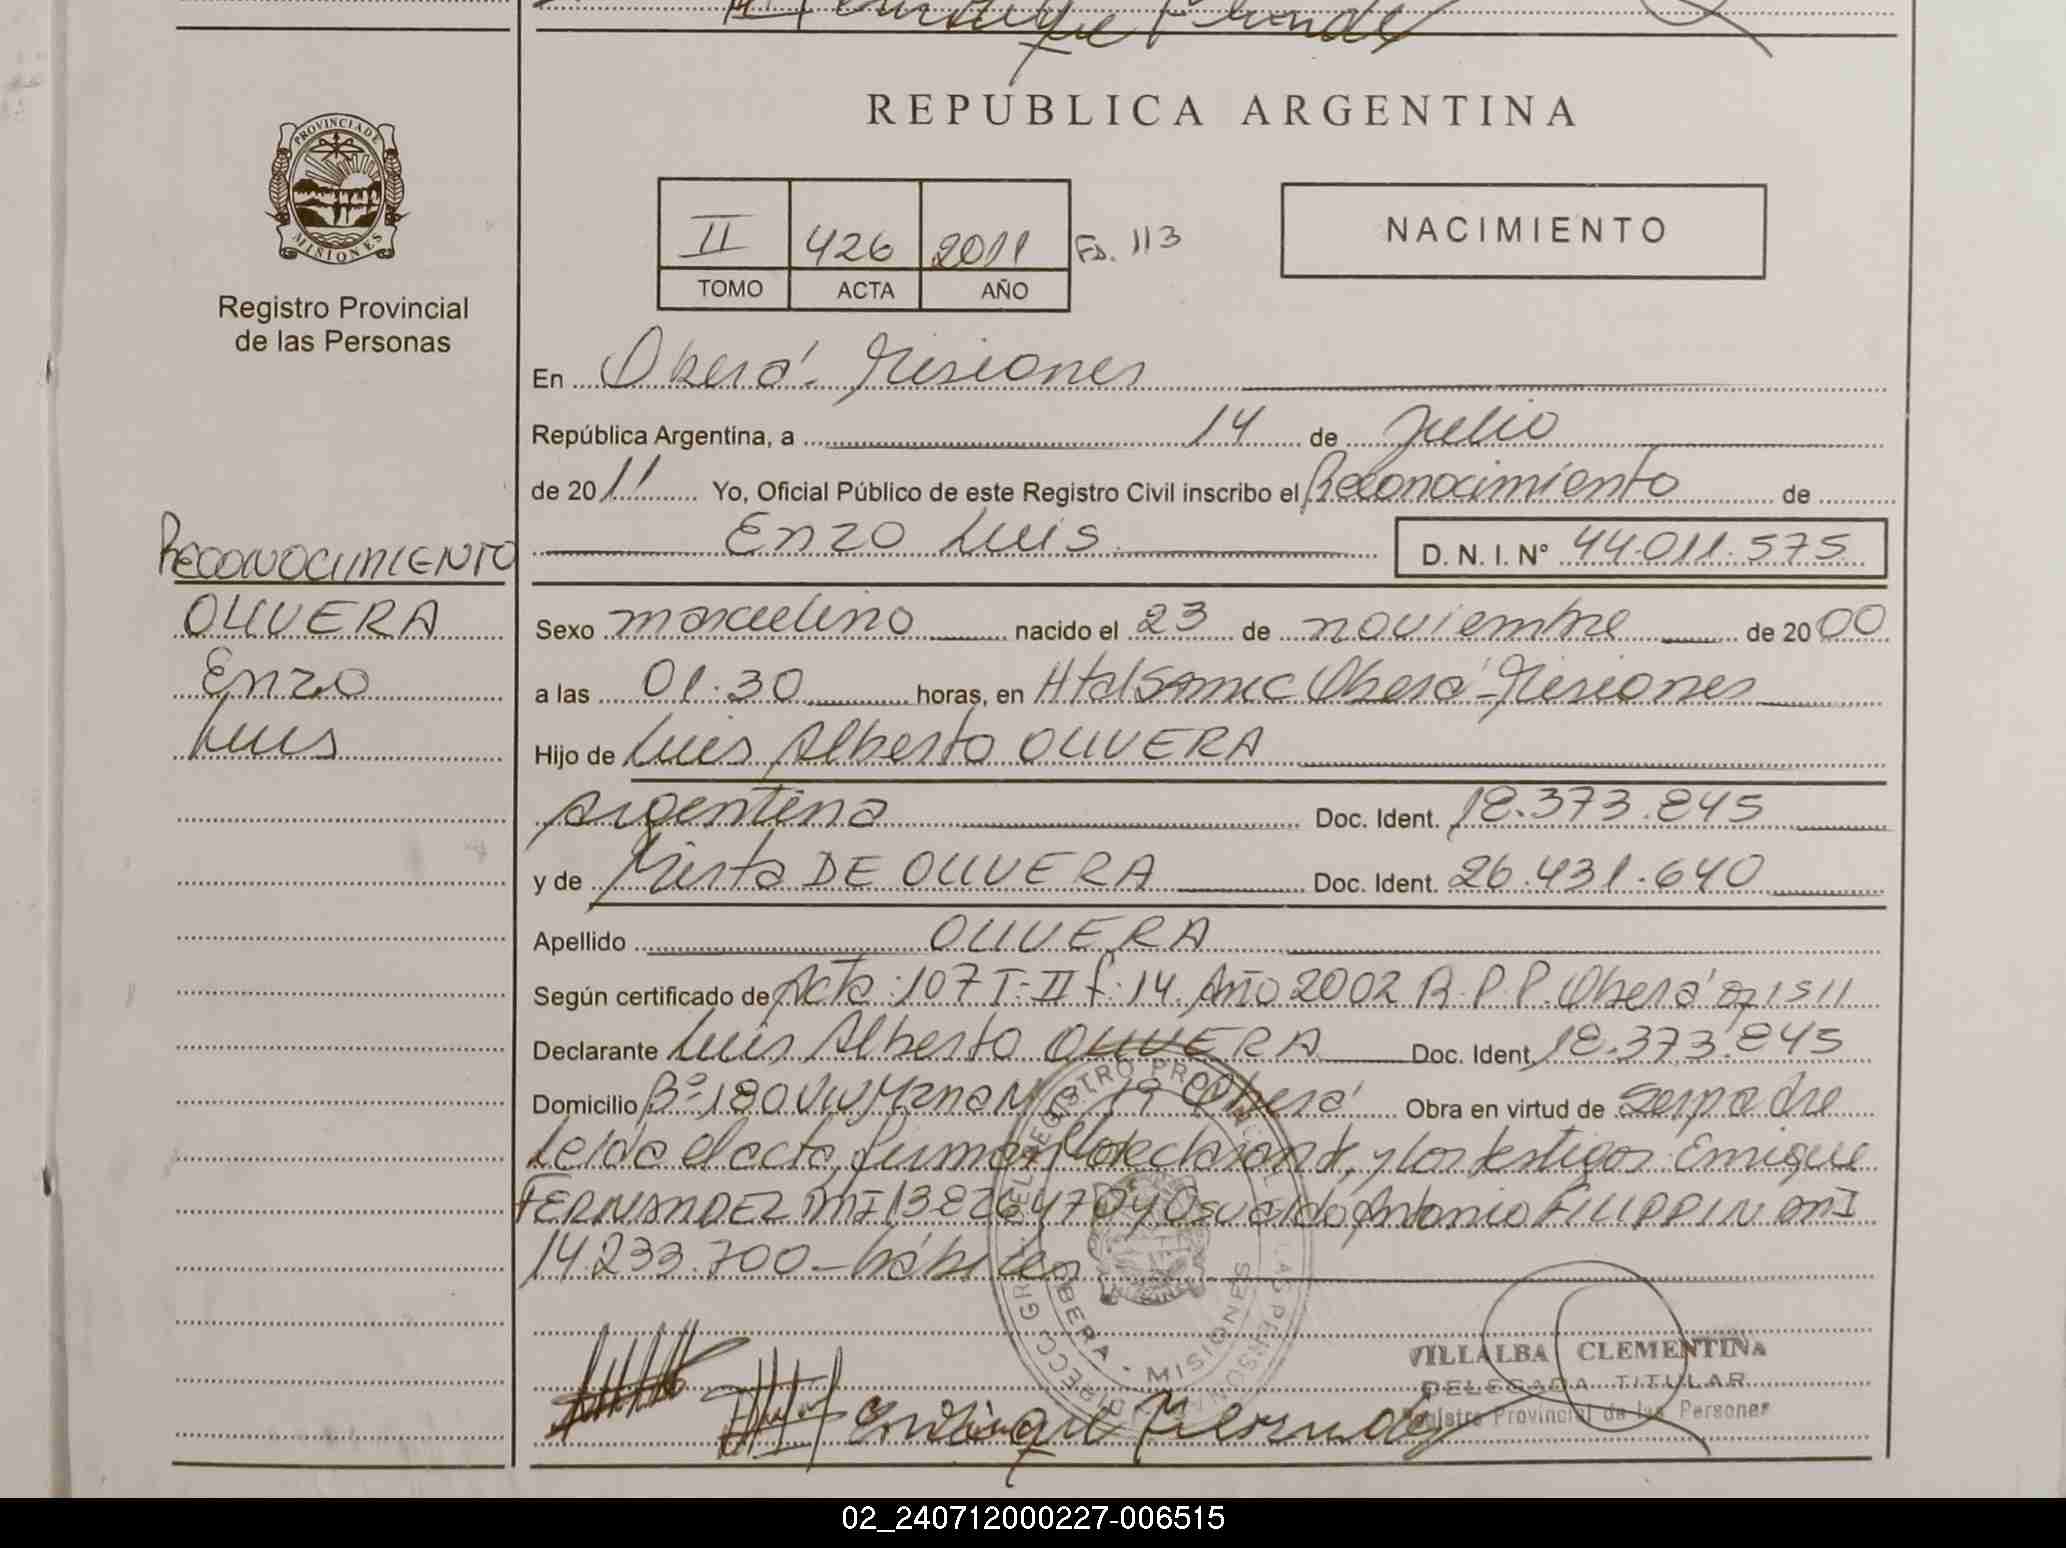 REPÚBLICA ARGENTINA
PROVINCIA DE
MISIONES
Registro Provincial
de las Personas
II 426 2011 Fs. 113
TOMO ACTA AÑO
NACIMIENTO
En Oberá - Misiones
República Argentina, a 14 de Julio
de 2011 Yo, Oficial Público de este Registro Civil inscribo el Reconocimiento de
Enzo Luis D. N. I. N° 44.011.575
RECONOCIMIENTO
OLIVERA
Enzo
Luis
Sexo masculino nacido el 23 de noviembre de 2000
a las 01.30 horas, en Htal SAMIC Oberá - Misiones
Hijo de Luis Alberto OLIVERA
argentina Doc. Ident. 18.373.845
y de Mirta DE OLIVERA Doc. Ident. 26.431.640
Apellido OLIVERA
Según certificado de Acta: 107 T-II f. 14 Año 2002 R.P.P. Oberá
Declarante Luis Alberto OLIVERA Doc. Ident. 18.373.845
Domicilio B° 180 Viv Mzna 19 Oberá Obra en virtud de ser padre
Leída el acta, firman el declarante, y los testigos Enrique
FERNANDEZ MI 13826470 y Osvaldo Antonio FILIPPIN MI
14.233.700 - hábiles
OBERA - MISIONES
Enrique Fernandez
VILLALBA CLEMENTINA
DELEGADA TITULAR
Registro Provincial de las Personas
02_240712000227-006515